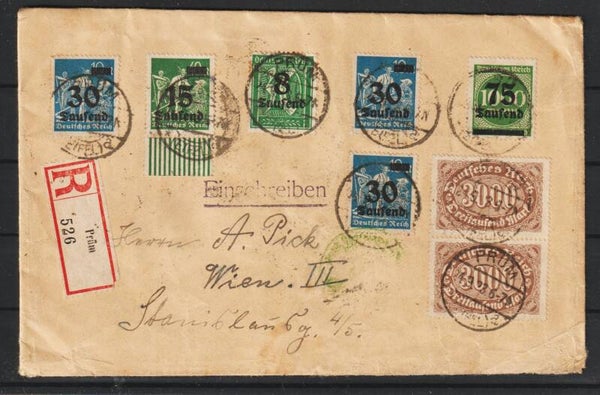 30
Tausend
Deutsches Reich
15
Tausend
Deutsches Reich
8
Tausend
30
Tausend
Deutsches Reich
Deutsches Reich
75
Tausend
30
Tausend
Deutsches Reich
Deutsches Reich
3000
Dreitausend Mark
3000
Dreitausend Mark
PRÜM
(EIFEL)
R
Prüm
526
Einschreiben
Herrn A. Pick
Wien III
Stanislausg. 4/5.